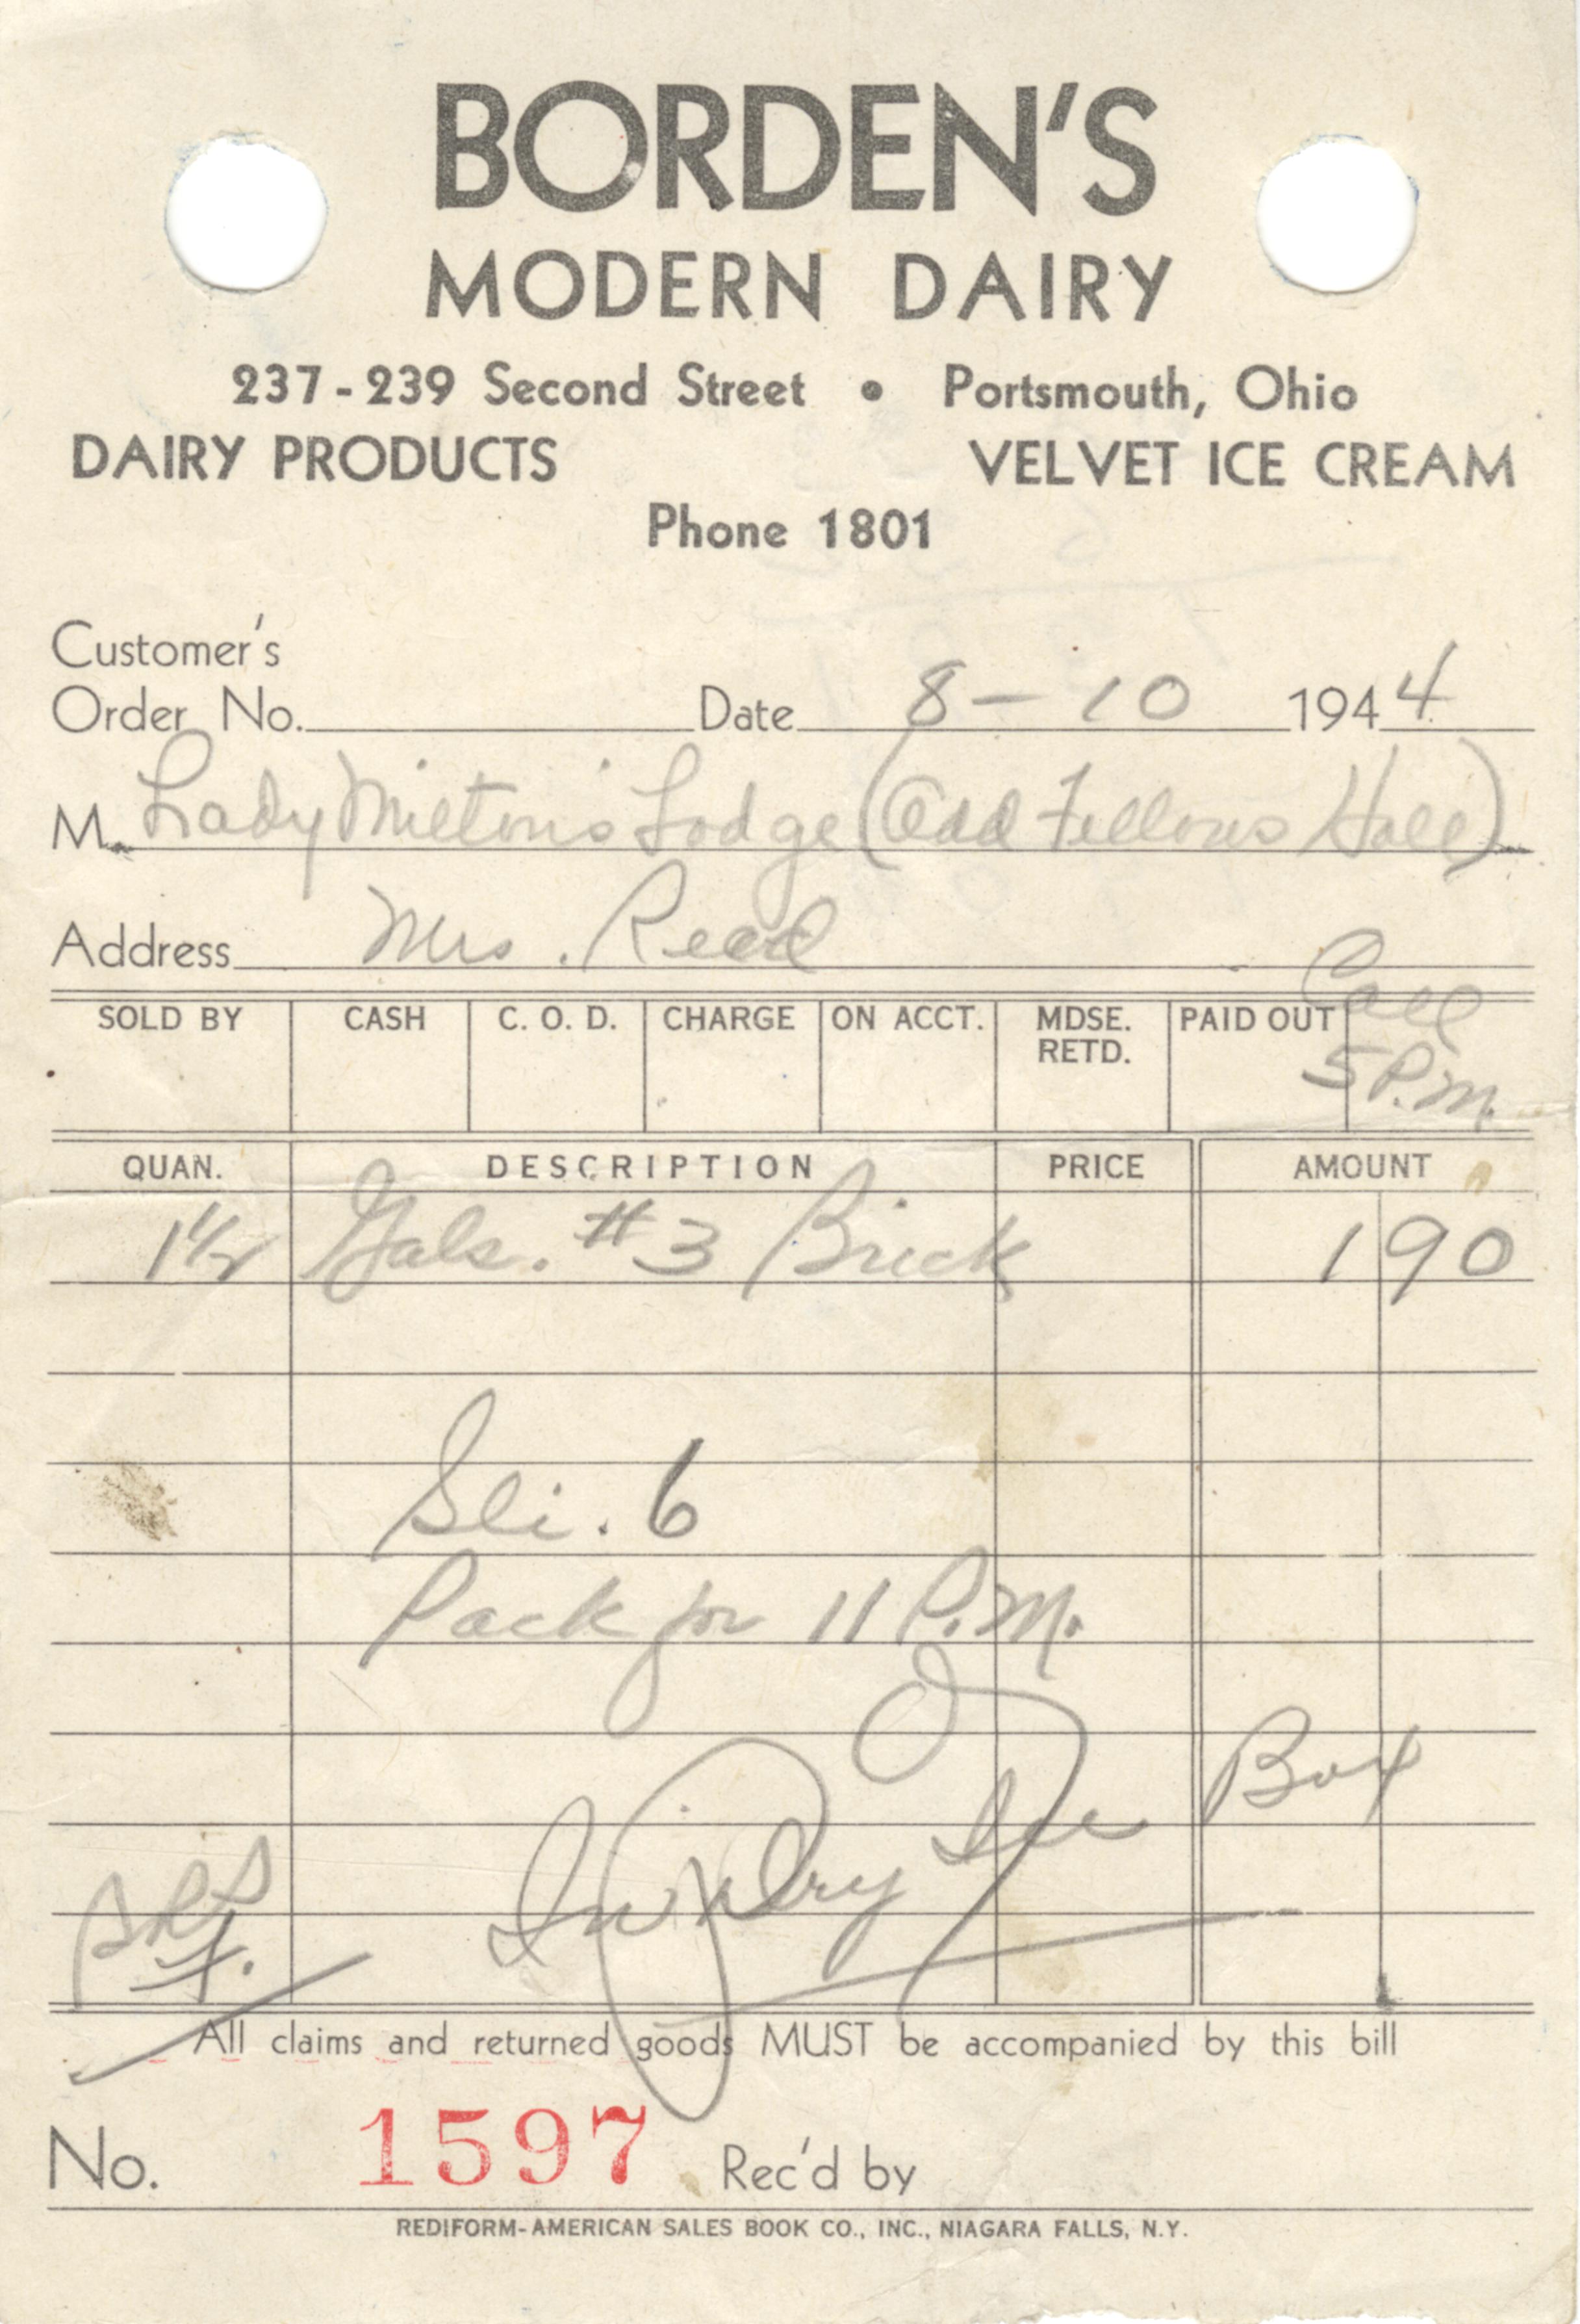 BORDEN'S
MODERN DAIRY
237-239 Second Street • Portsmouth, Ohio
DAIRY PRODUCTS VELVET ICE CREAM
Phone 1801
Customer's
Order No. Date 8-10 1944
M. Lady Milton's Lodge (Odd Fellows Hall)
Address Mrs. Reed
Call
5 P.M.
SOLD BY CASH C. O. D. CHARGE ON ACCT. MDSE. RETD. PAID OUT
QUAN. DESCRIPTION PRICE AMOUNT
1 1/2 Gals. #3 Brick 1 90
Sli. 6
Pack for 11 P.M.
In Dry Ice Box
All claims and returned goods MUST be accompanied by this bill
No. 1597 Rec'd by
REDIFORM-AMERICAN SALES BOOK CO., INC., NIAGARA FALLS, N.Y.